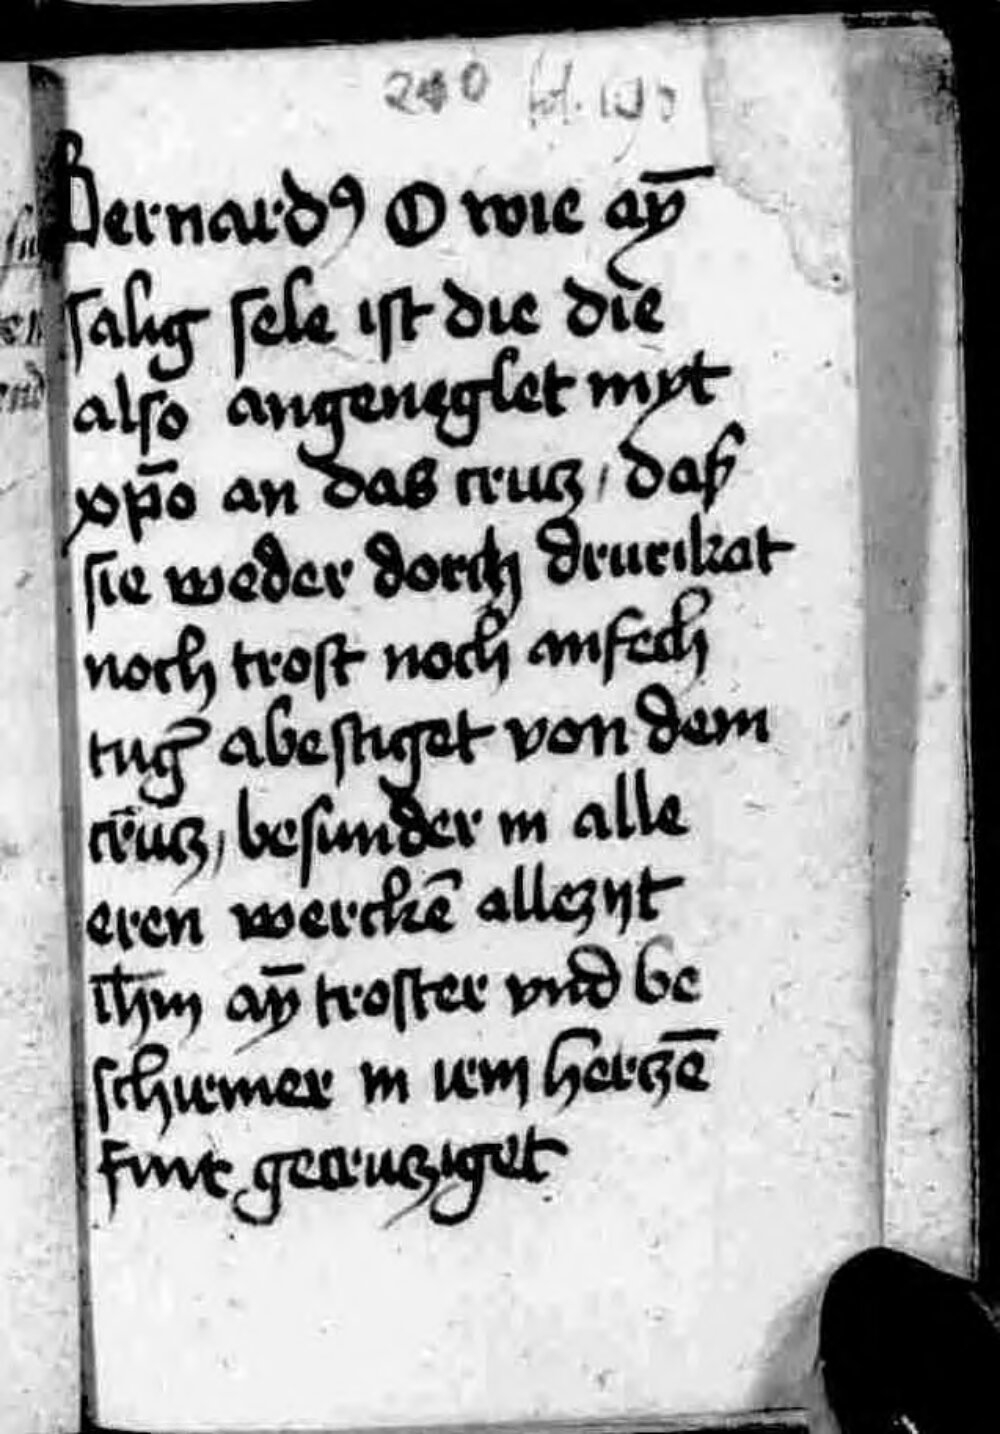 240 fol. 190
Bernardꝯ O wie aȳ
salig sele ist die die
also angeneglet myt
xp̄o an das crutz / das
sie weder dorch druckat
noch trost noch anfech
tu̅g abestiget von dem
cr̄utz, besunder in alle
eren werckē allezijt
ih̄m aȳ troster vnd be
schirmer in irem hertzē
fint gecrutziget